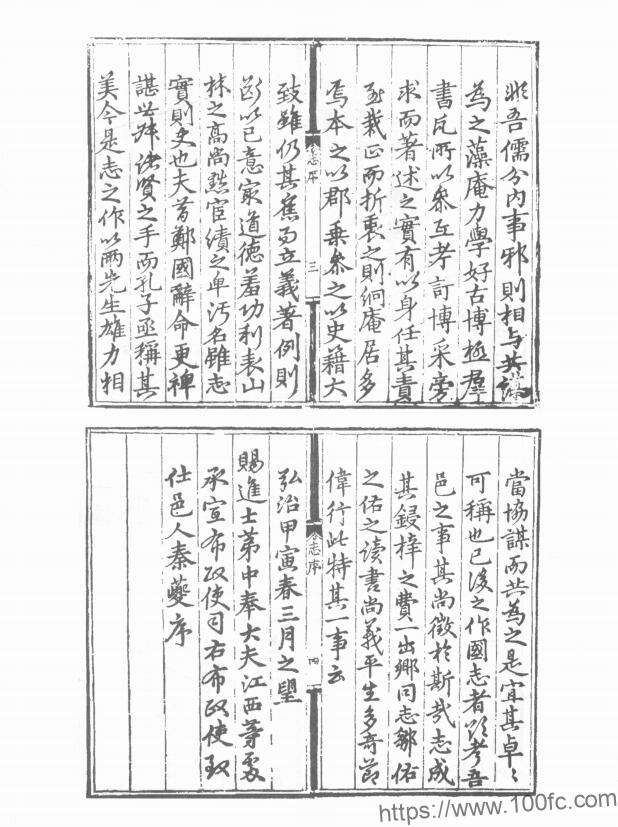 非吾儒分内事邪則相与共編
為之藻庵力學好古博極羣
書凡所以叅互考訂博采旁
求而著述之實有以身任其責
至裁正而折衷之則絅庵居多
焉本之以郡乗叅之以史籍大
志序 三
致雖仍其舊而立義著例則
斷以已意崇道德羞功利表山
林之高尚黜宦績之卑污名雖志
實則史也夫昔鄭國辭命更裨
諶世叔諸賢之手而孔子亟稱其
美今是志之作以兩先生雄力相
當協謀而共為之是宜其卓〻
可稱也已後之作國志者欲考吾
邑之事其尚徵於斯哉志成
其鋟梓之費一出鄉同志鄒佑
之佑之读書尚義平生多奇節
偉行此特其一事云
志序 四
弘治甲寅春三月之望
賜進士苐中奉大夫江西等處
承宣布政使司右布政使致
仕邑人秦夔序
https://www.100fc.com